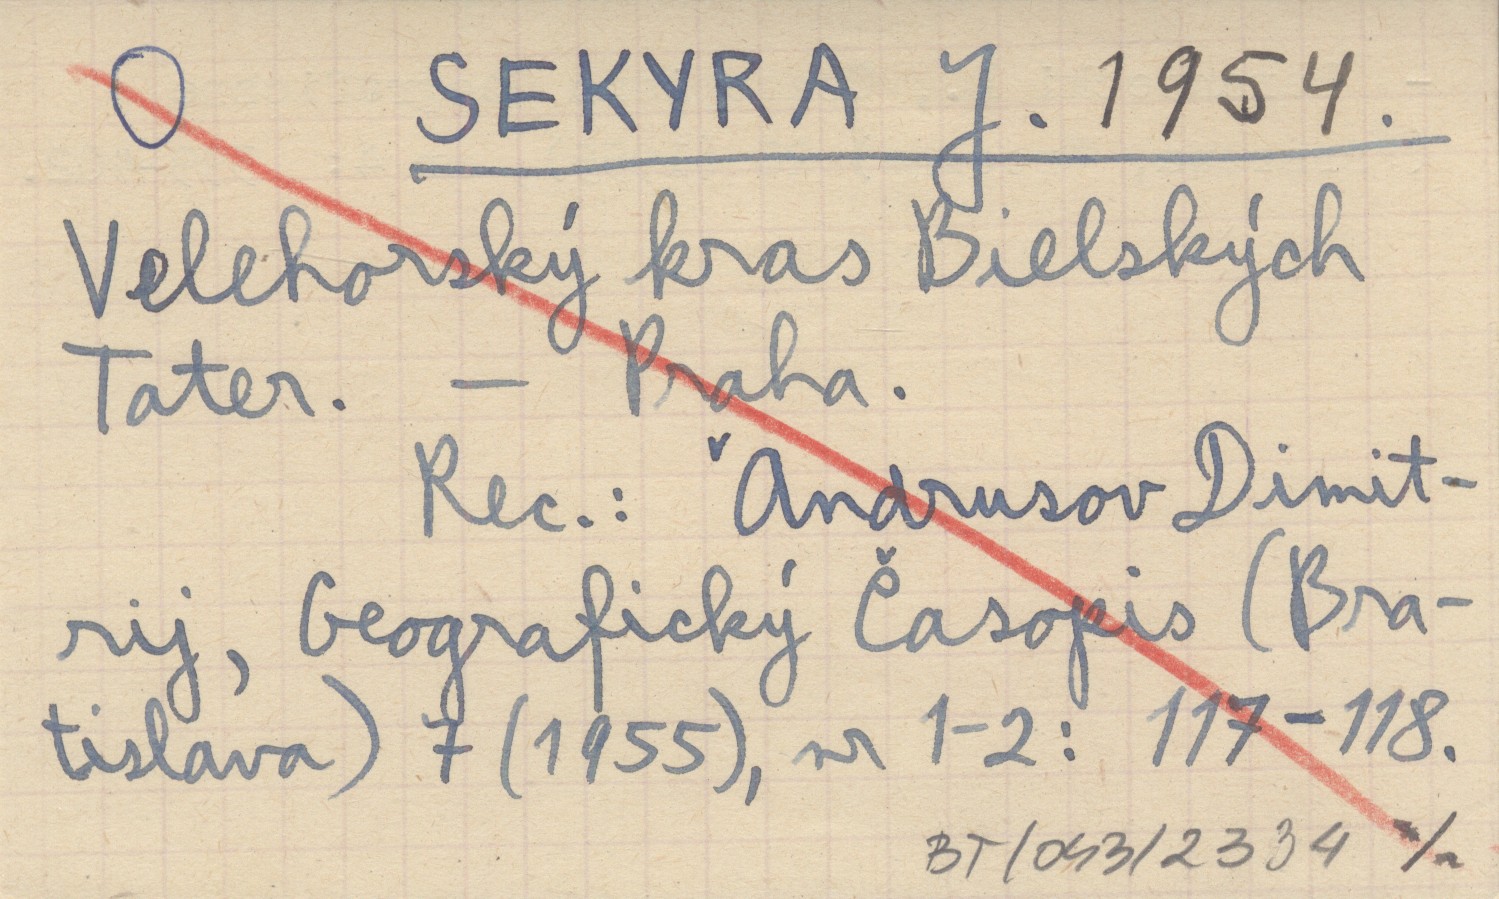 O SEKYRA J. 1954.
Velehorský kras Bielských
Tater. — Praha.
Rec.: ˇAndrusov Dimit-
rij, Geografický Časopis (Bra-
tislava) 7 (1955), nr 1-2: 117-118.
BT/043/2334 ./.